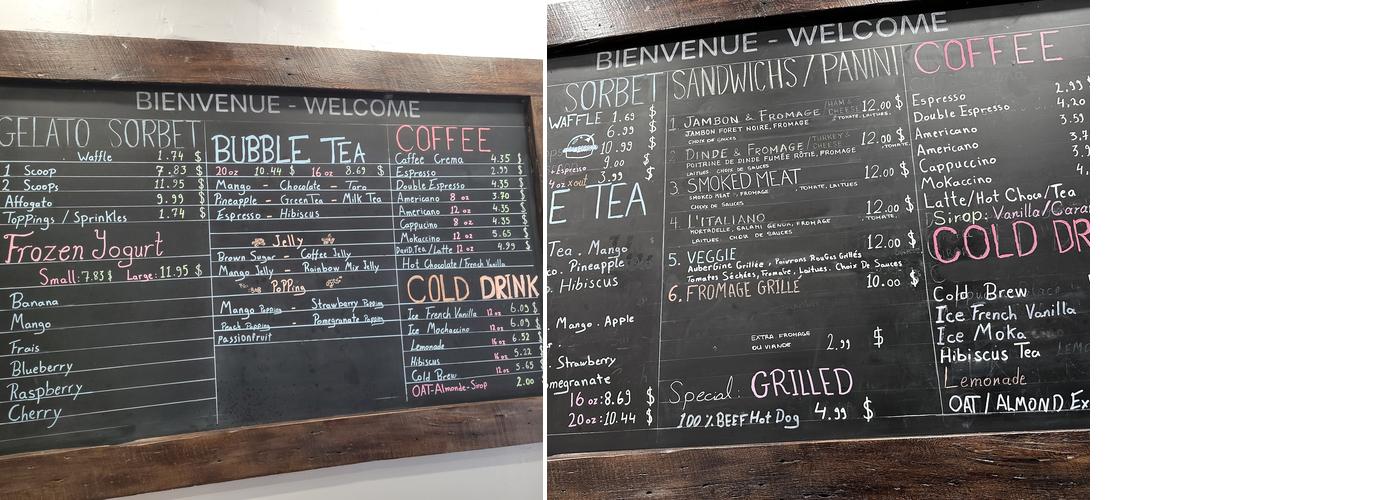 BIENVENUE - WELCOME
GELATO SORBET
. Waffle 1.74 $
1 Scoop 7.83 $
2 Scoops 11.95 $
Affogato 9.99 $
Toppings / Sprinkles 1.74 $
Frozen Yogurt
Small: 7.83 $ Large: 11.95 $
Banana
Mango
Frais
Blueberry
Raspberry
Cherry
BUBBLE TEA
20 oz 10.44 $ 16 oz 8.69 $
Mango - Chocolate - Taro
Pineapple - Green Tea - Milk Tea
Espresso - Hibiscus
Jelly
Brown Sugar - Coffee Jelly
Mango Jelly - Rainbow Mix Jelly
Popping
Mango Popping - Strawberry Popping
Peach Popping - Pomegranate Popping
Passionfruit
COFFEE
Caffee Crema 4.35 $
Espresso 2.99 $
Double Espresso 4.35 $
Americano 8 oz 3.70 $
Americano 12 oz 4.35 $
Cappucino 8 oz 4.35 $
Mokaccino 12 oz 5.65 $
DavidsTea / Latte 12 oz 4.99 $
Hot Chocolate / French Vanilla
COLD DRINK
Ice French Vanilla 12 oz 6.09 $
Ice Mochaccino 12 oz 6.09 $
Lemonade 16 oz 6.52 $
Hibiscus 16 oz 5.22 $
Cold Brew 12 oz 5.65 $
OAT-Almonde-Sirop 2.00
BIENVENUE - WELCOME
SORBET
WAFFLE 1.69 $
6.99 $
10.99 $
+ Espresso 9.00 $
4 oz x out 3.99 $
E TEA
Tea . Mango
co. Pineapple
o. Hibiscus
. Mango . Apple
. Strawberry
omegranate
16 oz: 8.69 $
20 oz: 10.44 $
SANDWICHS / PANINI
1 JAMBON & FROMAGE / HAM & CHEESE 12.00 $
JAMBON FORET NOIRE, FROMAGE . TOMATE. LAITUES.
CHOIX DE SAUCES
2 DINDE & FROMAGE / TURKEY & CHEESE 12.00 $
POITRINE DE DINDE FUMÉE RÔTIE, FROMAGE . TOMATE.
LAITUES. CHOIX DE SAUCES
3. SMOKED MEAT 12.00 $
SMOKED MEAT . FROMAGE . TOMATE, LAITUES
CHOIX DE SAUCES
4. L'ITALIANO 12.00 $
MORTADELLE, SALAMI GENOA, FROMAGE TOMATE.
LAITUES CHOIX DE SAUCES
5. VEGGIE 12.00 $
Aubergine Grillée, Poivrons Rouges Grillés
Tomates Séchées, Fromage, Laitues. Choix De Sauces
6. FROMAGE GRILLE 10.00 $
EXTRA FROMAGE
OU VIANDE 2.99 $
Special: GRILLED
100 % BEEF Hot Dog 4.99 $
COFFEE
Espresso 2.99 $
Double Espresso 4.20
Americano 3.59
Americano 3.7
Cappuccino 3.9
Mokaccino 4.
Latte/Hot Choco/Tea
Sirop: Vanilla/Cara
COLD DR
Cold Brew
Ice French Vanilla
Ice Moka
Hibiscus Tea
Lemonade
OAT / ALMOND Ex